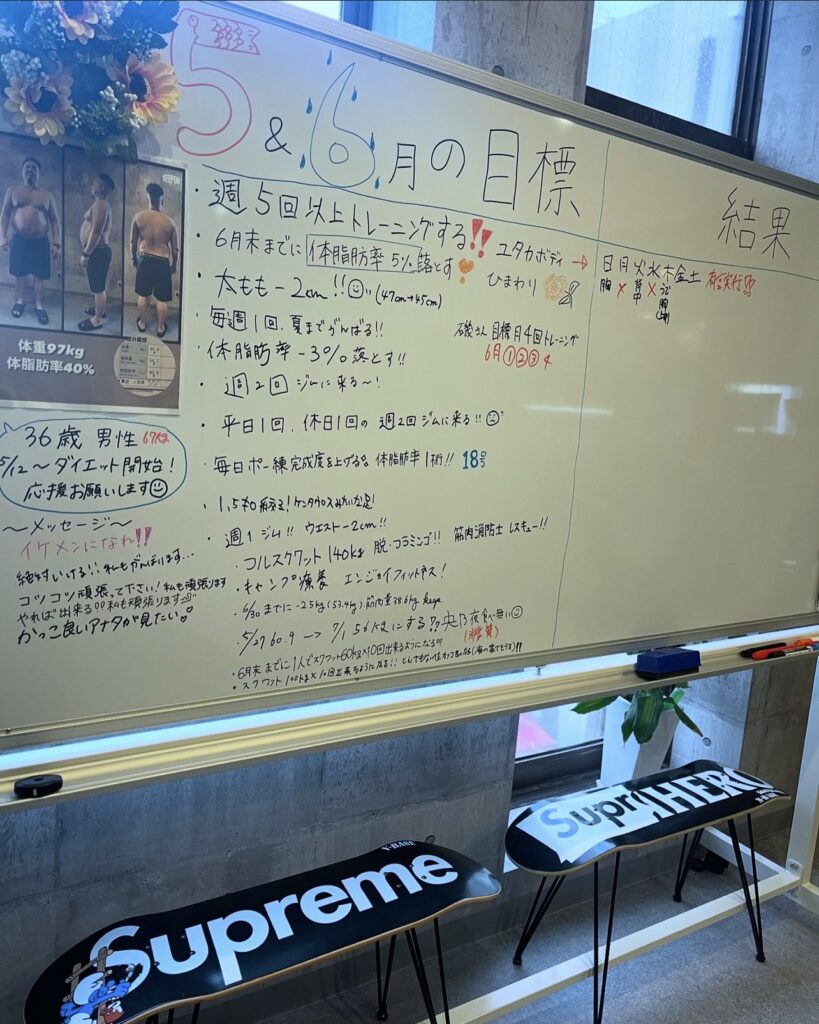 5&6月の目標
結果
・週5回以上トレーニングする!!
・6月末までに体脂肪率5%落とす
・太もも-2cm!!(47cm→45cm)
・毎週1回、夏までがんばる!!
・体脂肪率-3%落とす!!
・週2回ジムに来る〜!
・平日1回、休日1回の週2回ジムに来る!!
・毎日ポー練完成度を上げる 体脂肪率1桁!! 18号
・週1ジム!! ウエスト-2cm!!
・フルスクワット140kg 脱・フラミンゴ!! 筋肉消防士 レスキュー!!
・キャンプ療養 エンジョイフィットネス!
・6/30までに-2.5kg(53.4kg)筋肉量38.6kg
・5/27 60.9→7/1 56kgにする?? 夜食べ無い
(糖質)
・6月末までに1人でスクワット60kg×10回出来るようになる
・スクワット100kg×10回出来るようになる!!
ユタカボディ→
ひまわり
目標月4回トレーニング
6月①②③4
日月火水木金土
胸 × 背中 ×
体重97kg
体脂肪率40%
36歳 男性 67kg
5/12〜ダイエット開始!
応援お願いします
〜メッセージ〜
イケメンになれ!!
絶対いける!!私もがんばります…
コツコツ頑張って下さい!私も頑張ります
やれば出来る 私も頑張ります
かっこ良いアナタが見たい
Supreme
V-BASE
Supr
HERO